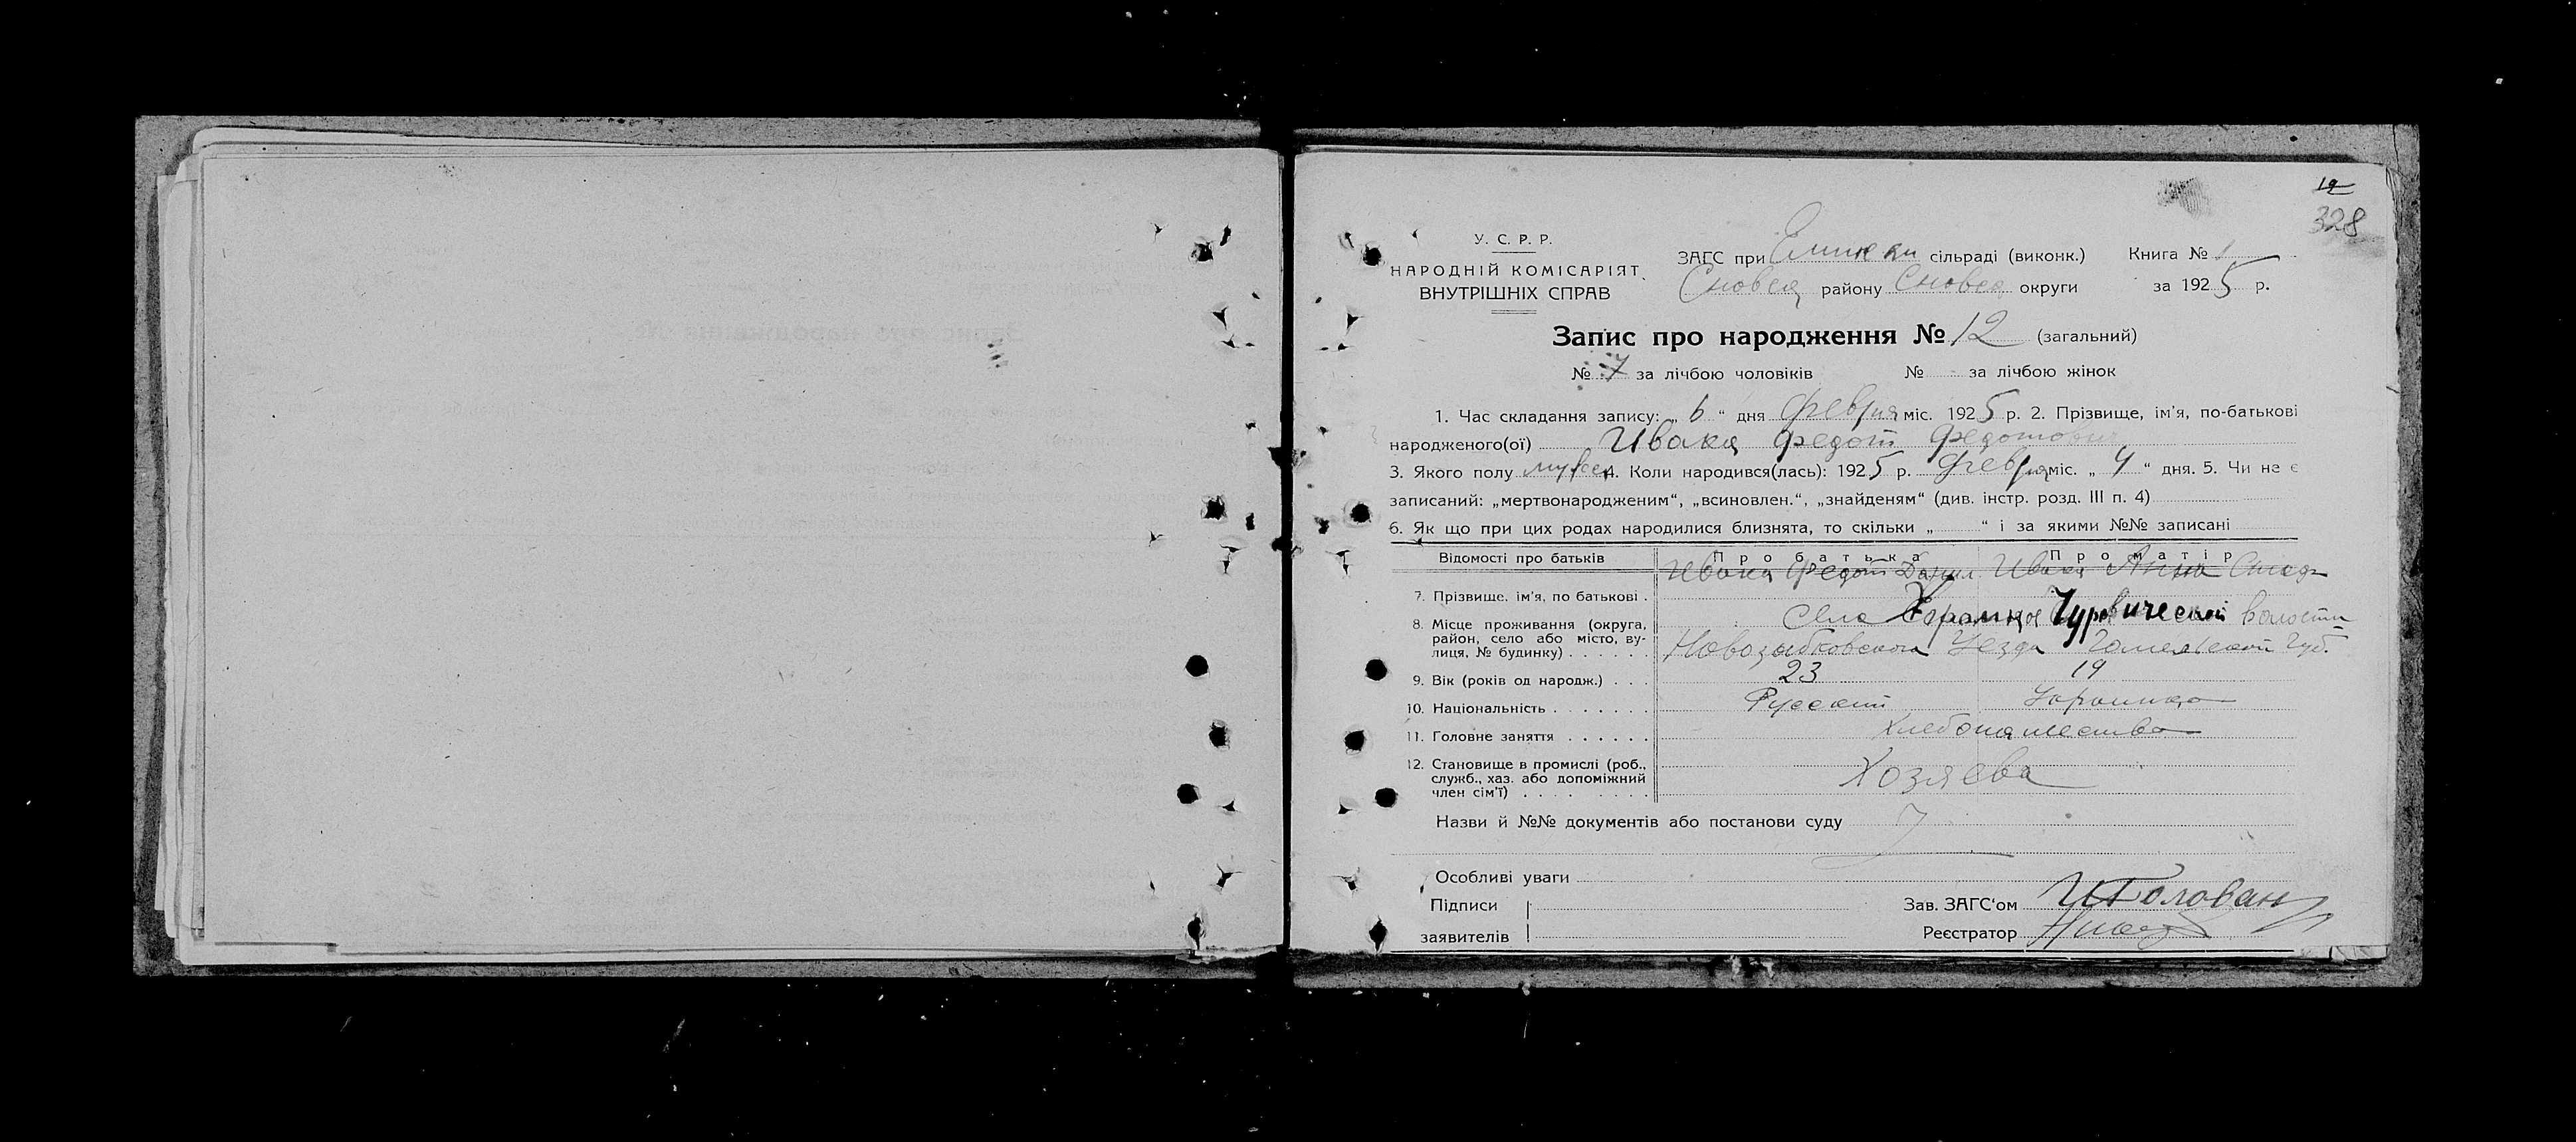 19
328
У. С. Р. Р.
НАРОДНІЙ КОМІСАРІЯТ
ВНУТРІШНІХ СПРАВ
ЗАГС при сільраді (виконк.) Книга № 1
Сновск району Сновск округи за 1925 р.
Запис про народження № 12 (загальний)
№ 7 за лічбою чоловіків № за лічбою жінок
1. Час складання запису: „ 6 “ дня февраля міс. 1925 р. 2. Прізвище, ім'я, по-батькові
народженого(ої) Ивака Федот Федотович
3. Якого полу мужск 4. Коли народився(лась): 1925 р. февраля міс. „ 4 “ дня. 5. Чи не є
записаний: „мертвонародженим“, „всиновлен.“, „знайденям“ (див. інстр. розд. III п. 4)
6. Як що при цих родах народилися близнята, то скільки „ “ і за якими №№ записані
Відомості про батьків Про батька Про матір
Ивака Федот Данил. Ивака Анна
7. Прізвище, ім'я, по батькові .
8. Місце проживання (округа, район, село або місто, вулиця, № будинку) . . . . . .
Села Чуровической волости
Новозыбковского Уезда Гомельской Губ.
9. Вік (років од народж.) . . . 23 19
10. Національність . . . . . . . Русский Украинка
11. Головне заняття . . . . . . Хлебопашество
12. Становище в промислі (роб., служб., хаз. або допоміжний член сім'ї) . . . . . . . .
Хозяева
Назви й №№ документів або постанови суду
Особливі уваги
Підписи
заявителів
Зав. ЗАГС'ом Головань
Реєстратор